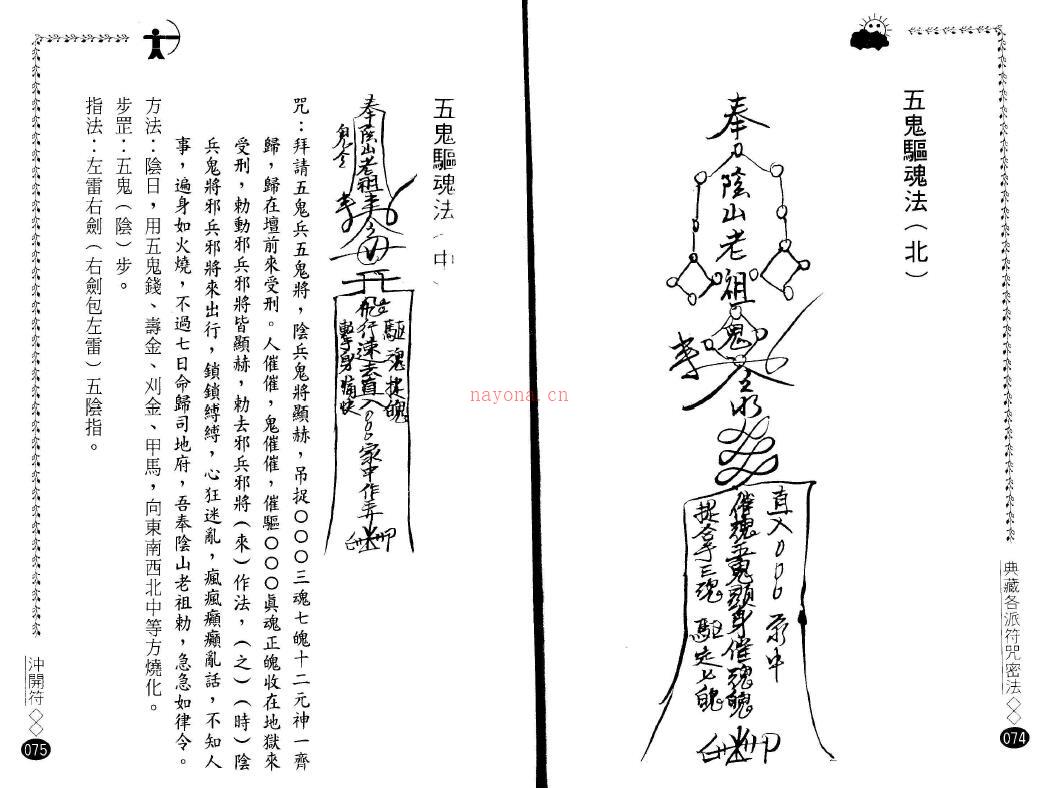 五鬼驅魂法（北）
奉
陰山老祖
鬼
直入○○○家中
催魂五鬼頭身催魂魄
捉拿三魂 驅走七魄
典藏各派符咒密法
074
五鬼驅魂法（中）
奉陰山老祖
驅魂捉魄
飛行速去直入○○○家中作弄
咒：拜請五鬼兵五鬼將，陰兵鬼將顯赫，吊捉○○○三魂七魄十二元神一齊
歸，歸在壇前來受刑。人催催，鬼催催，催驅○○○真魂正魄收在地獄來
受刑，勅動邪兵邪將皆顯赫，勅去邪兵邪將（來）作法，（之）（時）陰
兵鬼將邪兵邪將來出行，鎖鎖縛縛，心狂迷亂，瘋瘋癲癲亂話，不知人
事，遍身如火燒，不過七日命歸司地府，吾奉陰山老祖勅，急急如律令。
方法：陰日，用五鬼錢、壽金、刈金、甲馬，向東南西北中等方燒化。
步罡：五鬼（陰）步。
指法：左雷右劍（右劍包左雷）五陰指。
沖開符
075
nayona.cn